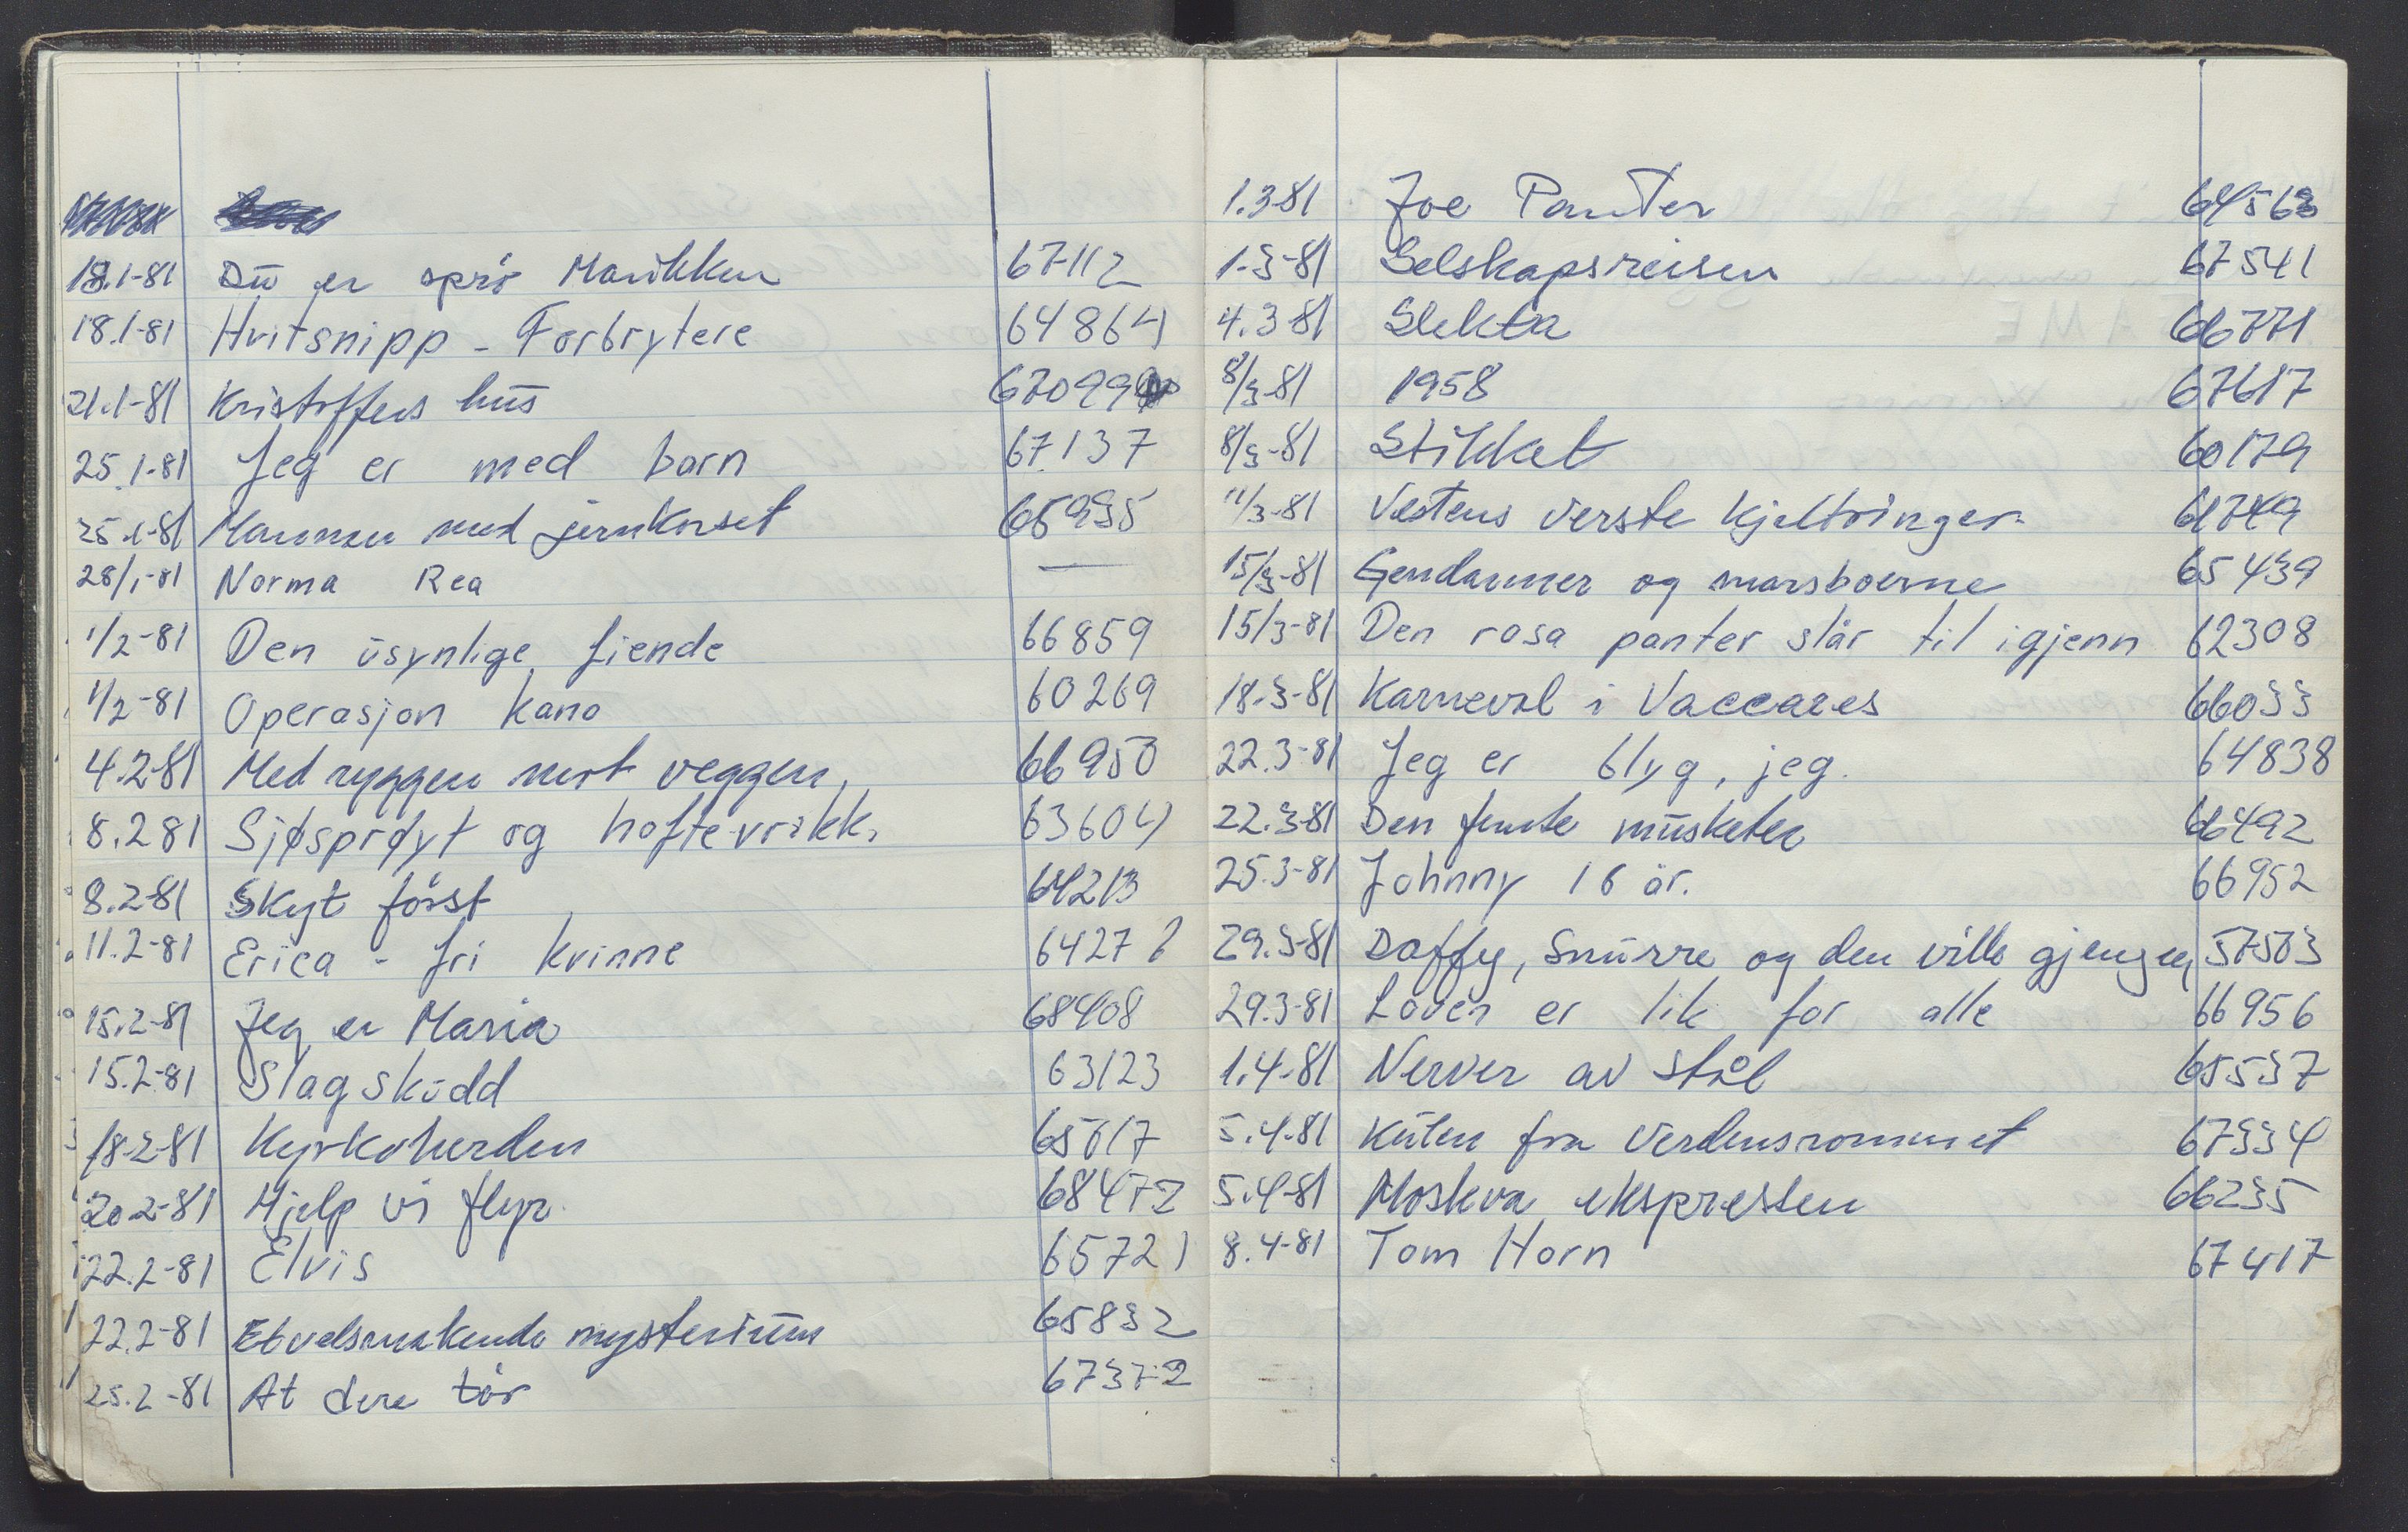 18.1-81 Du er sprø Marikken 67112
18.1-81 Hvitsnipp - Forbrytere 64864
21.1-81 Kristoffers hus 67099
25.1-81 Jeg er med barn 67137
25.1-81 Mannen med jernkorset 65935
28/1-81 Norma Rea —
1/2-81 Den usynlige fiende 66859
1/2-81 Operasjon kano 60269
4.2-81 Med ryggen mot veggen 66950
8.2 81 Sjøsprøyt og hoftevrikk. 63604
8.2-81 Skyt først 64213
11.2-81 Erica - fri kvinne 6427
15.2-81 Jeg er Maria 68408
15.2-81 Slagskudd 63123
18-2-81 Kyrkoherden 65617
20.2-81 Hjelp vi flyr. 68472
22.2-81 Elvis 65721
22.2-81 Et velsmakende mysterium 65832
25.2-81 At dere tør 67372
1.3-81 Joe Panter 64563
1.3-81 Selskapsreisen 67541
4.3-81 Slekta 66771
8/3-81 1958 67617
8/3-81 Stikket 60179
11/3-81 Vestens verste kjeltringer 61749
15/3-81 Gendarmer og marsboerne 65439
15/3-81 Den rosa panter slår til igjenn 62308
18.3-81 Karneval i Vaccares 66033
22.3-81 Jeg er blyg, jeg. 64838
22.3-81 Den femte musketer 66492
25.3-81 Johnny 16 år. 66952
29.3-81 Daffy, Snurre og den ville gjengen 57503
29.3-81 Loven er lik for alle 66956
1.4-81 Nerver av stål 65537
5.4-81 Kulen fra verdensrommet 67334
5.4-81 Moskva ekspressen 66235
8.4-81 Tom Horn 67417